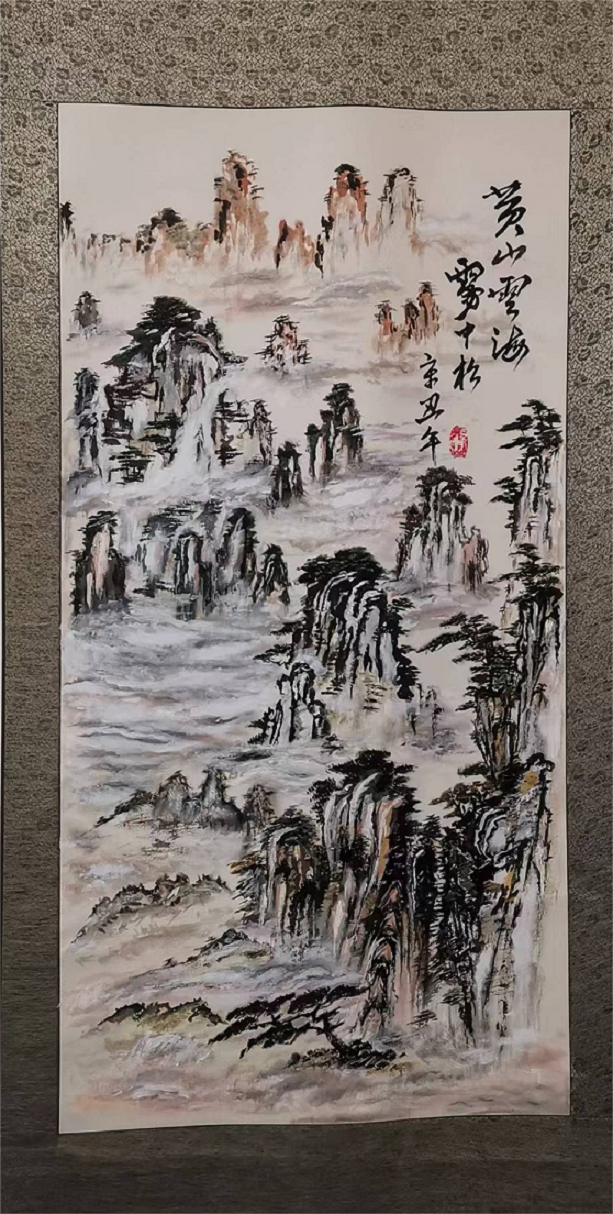 黄山雲海
霧中松
辛丑年